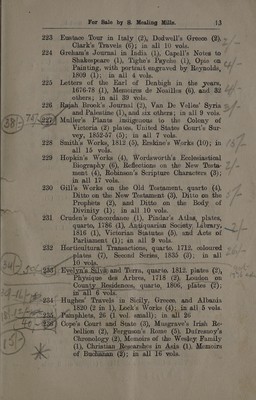 For Sale by S. Mealing Mills. 13
223 Eustace Tour in Italy (2), Dodwell's Greece (2),
Clark's Travels (6); in all 10 vols.
224 Graham's Journal in India (1), Capell's Notes to
Shakespeare (1), Tighe's Psyche (1), Opie on
Painting, with portrait engraved by Reynolds,
1809 (1); in all 4 vols.
225 Letters of the Earl of Denbigh in the years,
1676-78 (1), Memoires de Noailles (6), and 32
others; in all 39 vols.
226 Rajah Brook's Journal (2), Van De Velles' Syria
and Palestine (1), and six others; in all 9 vols.
227 Muller's Plants indigenous to the Colony of
Victoria (2) plates, United States Court's Sur-
vey, 1852-57 (5); in all 7 vols.
228 Smith's Works, 1812 (5), Erskine's Works (10); in
all 15 vols.
229 Hopkin's Works (4), Wordsworth's Ecclesiastical
Biography (6), Reflections on the New Testa-
ment (4), Robinson's Scripture Characters (3);
in all 17 vols.
230 Gill's Works on the Old Testament, quarto (4),
Ditto on the New Testament (3), Ditto on the
Prophets (2), and Ditto on the Body of
Divinity (1); in all 10 vols.
231 Cruden's Concordance (1), Pindar's Atlas, plates,
quarto, 1786 (1), Antiquarian Society Library,
1816 (1), Victorian Statutes (5), and Acts of
Parliament (1); in all 9 vols.
232 Horticultural Transactions, quarto, 1712, coloured
plates (7), Second Series, 1835 (3); in all
10 vols.
233 Evelyn's Silva and Terra, quarto, 1812, plates (2),
Physique des Arbres, 1718 (2), London on
County Residences, quarto, 1806, plates (2);
in all 6 vols.
234 Hughes' Travels in Sicily, Greece, and Albania
1820 (2 in 1), Lock's Works (4); in all 5 vols.
235 Pamphlets, 26 (1 vol. small); in all 26
236 Cope's Court and State (3), Musgrave's Irish Re-
bellion (2), Ferguson's Rome (5), Dufresnoy's
Chronology (2), Memoirs of the Wesley Family
(1), Christian Researches in Asia (1), Memoirs
of Buchanan (2); in all 16 vols.